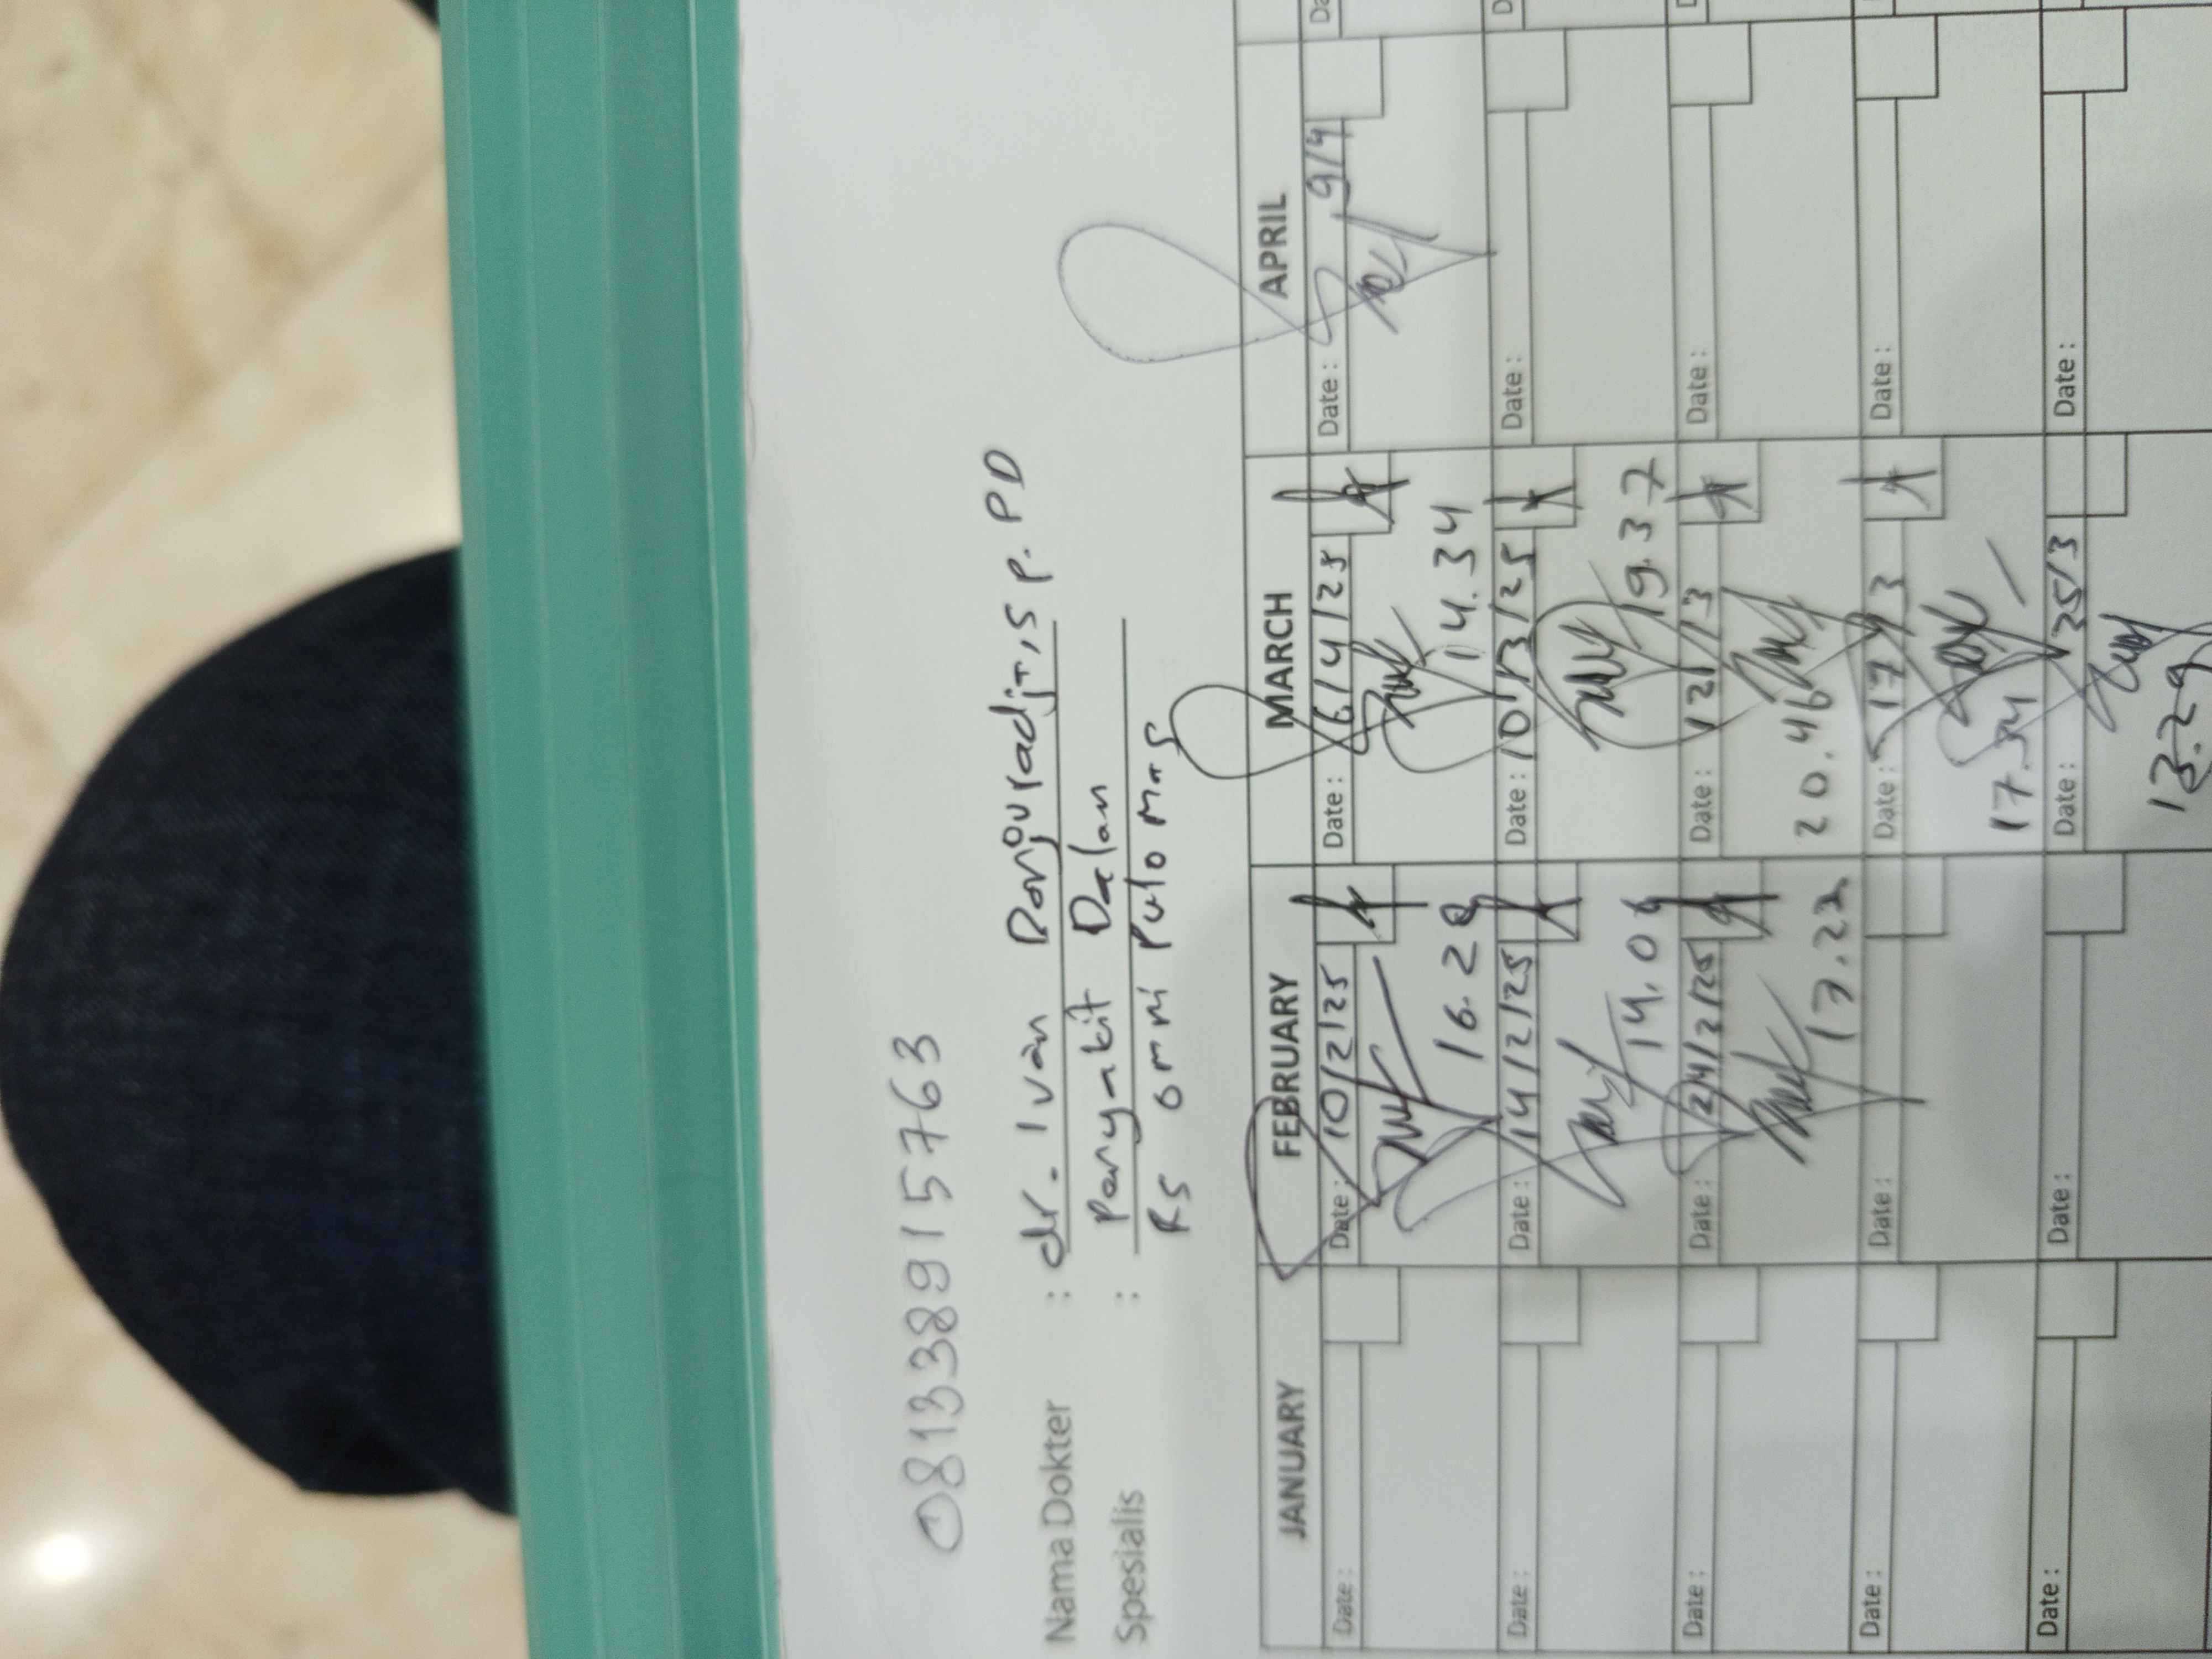 081338915763
Nama Dokter : dr. Ivan Panguradjt, SP. PD
Spesialis : Penyakit Dalam
RS omni Pulo Mas
JANUARY FEBRUARY MARCH APRIL
Date : Date : 10/2/25 Date : 6/4/25 Date : 9/4
16.28 14.34
Date : Date : 14/2/25 Date : 10/3/25 Date :
14.06 19.37
Date : Date : 24/2/25 Date : 12/3 Date :
17.22 20.46
Date : Date : Date : 17/3 Date :
17.34
Date : Date : Date : 25/3 Date :
13.29